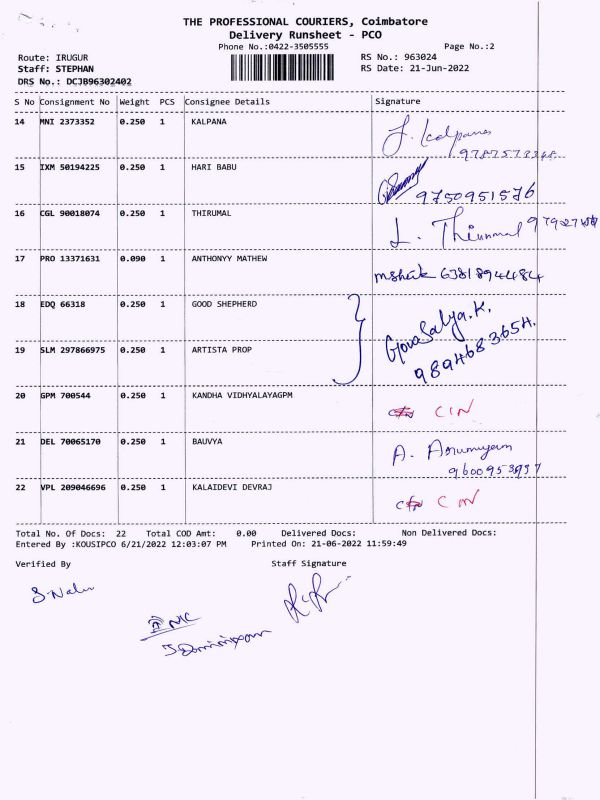 THE PROFESSIONAL COURIERS, Coimbatore
Delivery Runsheet - PCO
Phone No.:0422-3505555 Page No.:2
Route: IRUGUR RS No.: 963024
Staff: STEPHAN RS Date: 21-Jun-2022
DRS No.: DCJB96302402
S No Consignment No Weight PCS Consignee Details Signature
14 MNI 2373352 0.250 1 KALPANA J. Kalpana
15 IXM 50194225 0.250 1 HARI BABU
9750951576
16 CGL 90018074 0.250 1 THIRUMAL
L. Thirumal
17 PRO 13371631 0.090 1 ANTHONYY MATHEW
6381894484
18 EDQ 66318 0.250 1 GOOD SHEPHERD
19 SLM 297866975 0.250 1 ARTISTA PROP
9894683654
20 GPM 700544 0.250 1 KANDHA VIDHYALAYAGPM
CIN
21 DEL 70065170 0.250 1 BAUVYA
22 VPL 209046696 0.250 1 KALAIDEVI DEVRAJ
Total No. Of Docs: 22 Total COD Amt: 0.00 Delivered Docs: Non Delivered Docs:
Entered By :KOUSIPCO 6/21/2022 12:03:07 PM Printed On: 21-06-2022 11:59:49
Verified By Staff Signature